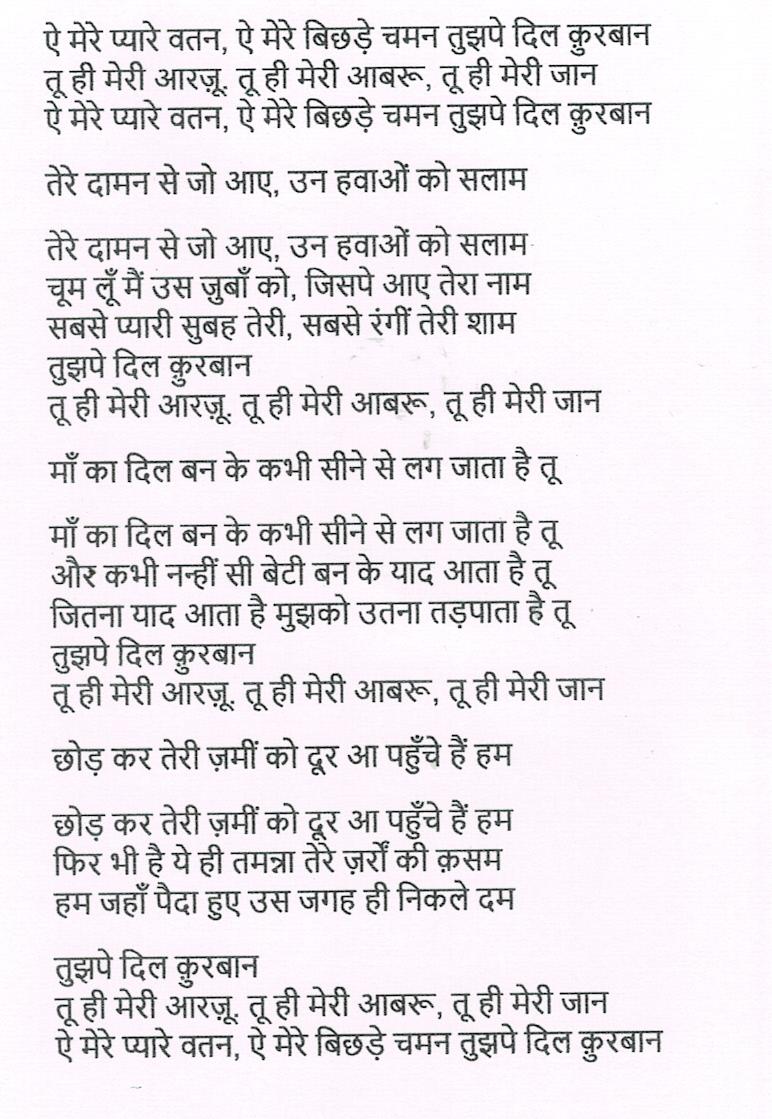 ऐ मेरे प्यारे वतन, ऐ मेरे बिछड़े चमन तुझपे दिल क़ुरबान
तू ही मेरी आरज़ू. तू ही मेरी आबरू, तू ही मेरी जान
ऐ मेरे प्यारे वतन, ऐ मेरे बिछड़े चमन तुझपे दिल क़ुरबान
तेरे दामन से जो आए, उन हवाओं को सलाम
तेरे दामन से जो आए, उन हवाओं को सलाम
चूम लूँ मैं उस ज़ुबाँ को, जिसपे आए तेरा नाम
सबसे प्यारी सुबह तेरी, सबसे रंगीं तेरी शाम
तुझपे दिल क़ुरबान
तू ही मेरी आरज़ू. तू ही मेरी आबरू, तू ही मेरी जान
माँ का दिल बन के कभी सीने से लग जाता है तू
माँ का दिल बन के कभी सीने से लग जाता है तू
और कभी नन्हीं सी बेटी बन के याद आता है तू
जितना याद आता है मुझको उतना तड़पाता है तू
तुझपे दिल क़ुरबान
तू ही मेरी आरज़ू. तू ही मेरी आबरू, तू ही मेरी जान
छोड़ कर तेरी ज़मीं को दूर आ पहुँचे हैं हम
छोड़ कर तेरी ज़मीं को दूर आ पहुँचे हैं हम
फिर भी है ये ही तमन्ना तेरे ज़र्रों की क़सम
हम जहाँ पैदा हुए उस जगह ही निकले दम
तुझपे दिल क़ुरबान
तू ही मेरी आरज़ू. तू ही मेरी आबरू, तू ही मेरी जान
ऐ मेरे प्यारे वतन, ऐ मेरे बिछड़े चमन तुझपे दिल क़ुरबान